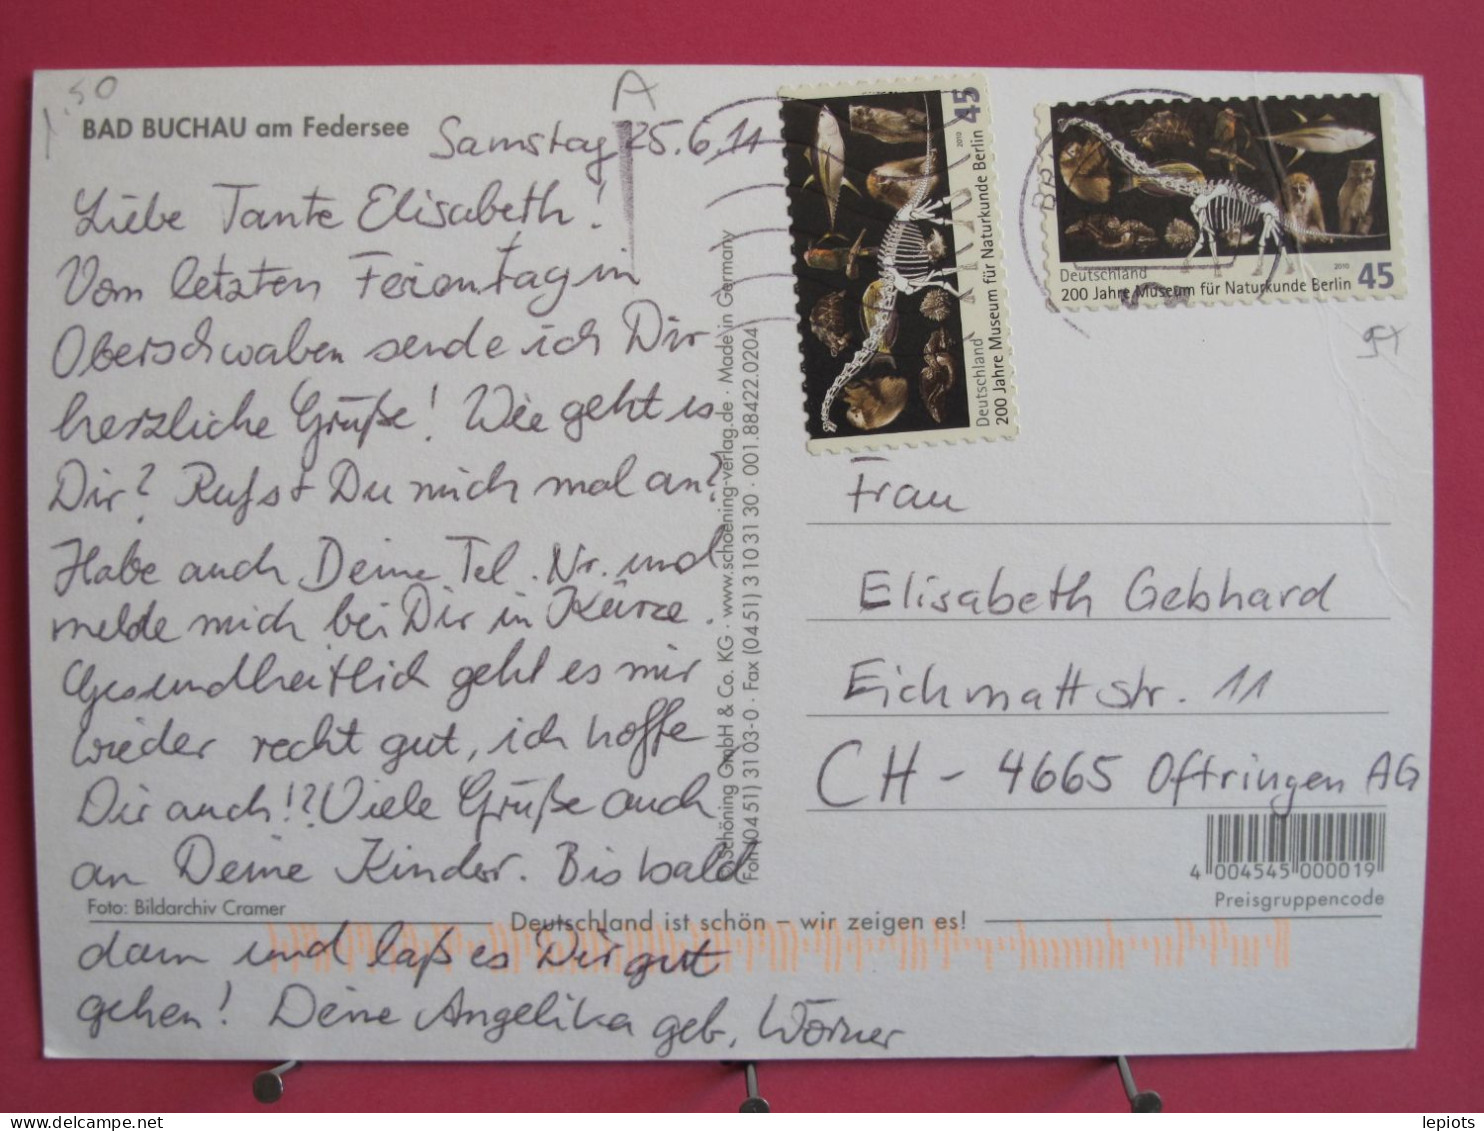 1.50
A
BAD BUCHAU am Federsee
Samstag 25.6.11
Liebe Tante Elisabeth!
Vom letzten Ferientag in
Oberschwaben sende ich Dir
herzliche Grüße! Wie geht es
Dir? Rufst Du mich mal an?
Habe auch Deine Tel. Nr. und
melde mich bei Dir in Kürze.
Gesundheitlich geht es mir
wieder recht gut, ich hoffe
Dir auch!? Viele Grüße auch
an Deine Kinder. Bis bald
dann und laß es Dir gut
gehen! Deine Angelika geb. Wörner
Foto: Bildarchiv Cramer
Deutschland ist schön – wir zeigen es!
Schöning GmbH & Co. KG · www.schoening-verlag.de · Made in Germany
Fon (04 51) 3 10 3-0 · Fax (04 51) 3 10 31 30 · 001.88422.0204
Deutschland
200 Jahre Museum für Naturkunde Berlin
2010
45
Deutschland
200 Jahre Museum für Naturkunde Berlin
2010
45
Frau
Elisabeth Gebhard
Eichmattstr. 11
CH - 4665 Oftringen AG
4 004545 000019
Preisgruppencode
lepiots